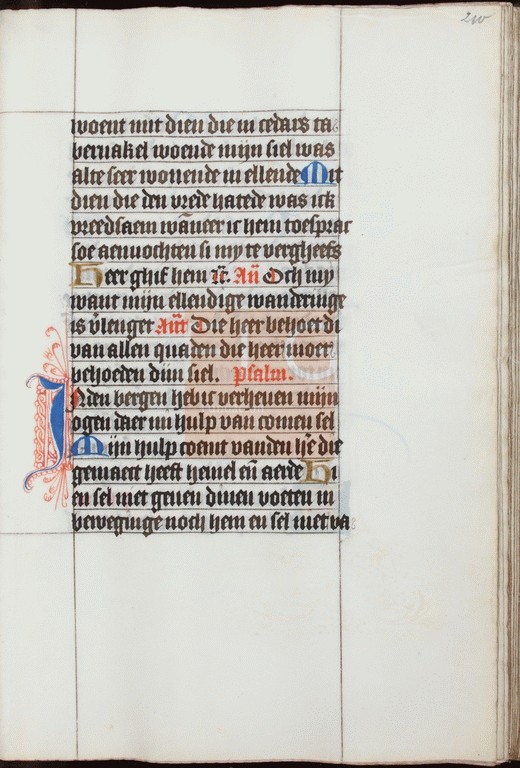 woent mit dien die in cedars ta
bernakel woende mijn siel was
alte seer wonende in ellende Mit
dien die den vrede hatede was ick
vreedsaem wãneer ic hem toesprac
soe aenvochten si my te vergheefs
Heer ghif hem Añ Och my
want mijn ellendige wanderinge
is v̄lenget Añt Die heer behoet di
van allen quaden die heer moet
behoeden dijn siel. psalm.
INden bergen heb ic verheuen mijn
ogen daer mi hulp van comen sel
Mijn hulp coemt vanden h̄e die
gemaect heeft hemel en̄ aerde Hi
en sel niet geuen dinen voeten in
beweginge noch hem en sel niet va